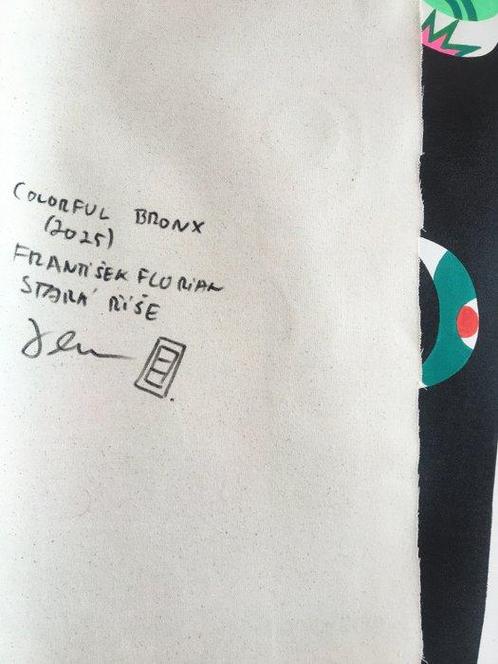 COLORFUL BRONX
(2025)
FRANTIŠEK FLORIAN
STARÁ ŘÍŠE